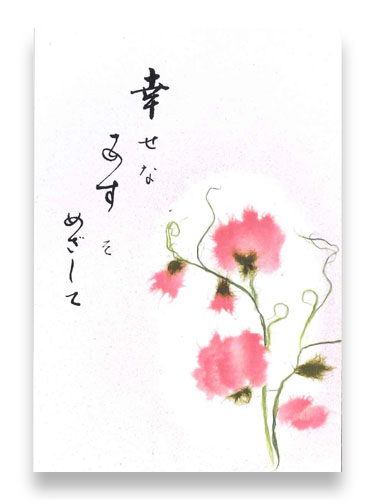 幸せな
あすを
めざして